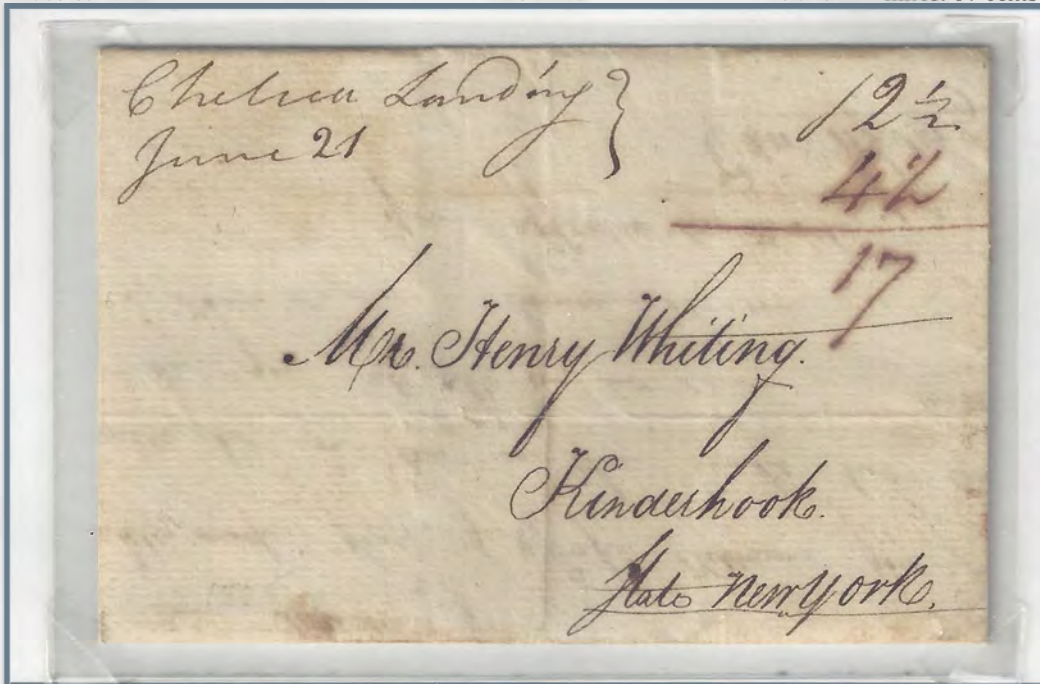 Chelsea Landing
June 21
12½
4½
17
Mr. Henry Whiting.
Kinderhook.
State New York.